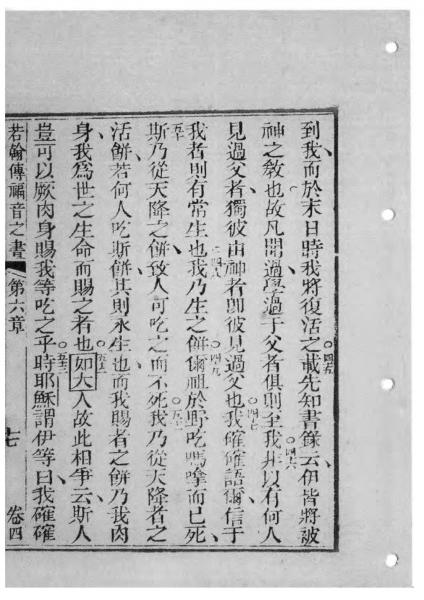 到我而於末日時我將復活之載先知書錄云伊皆將被
四五
神之教也故凡聞過學過于父者俱則至我非以有何人
四六
見過父者獨彼由神者卽彼見過父也我確確語爾信于
四七
我者則有常生也我乃生之餅爾祖於野吃嗎嗱而已死
四八
四九
斯乃從天降之餅致人可吃之而不死我乃從天降者之
五十
五一
活餅若何人吃斯餅其則永生也而我賜者之餅乃我肉
身我爲世之生命而賜之者也如大人故此相爭云斯人
五二
豈可以厥肉身賜我等吃之乎時耶穌謂伊等曰我確確
五三
若翰傳福音之書
第六章
七
卷四